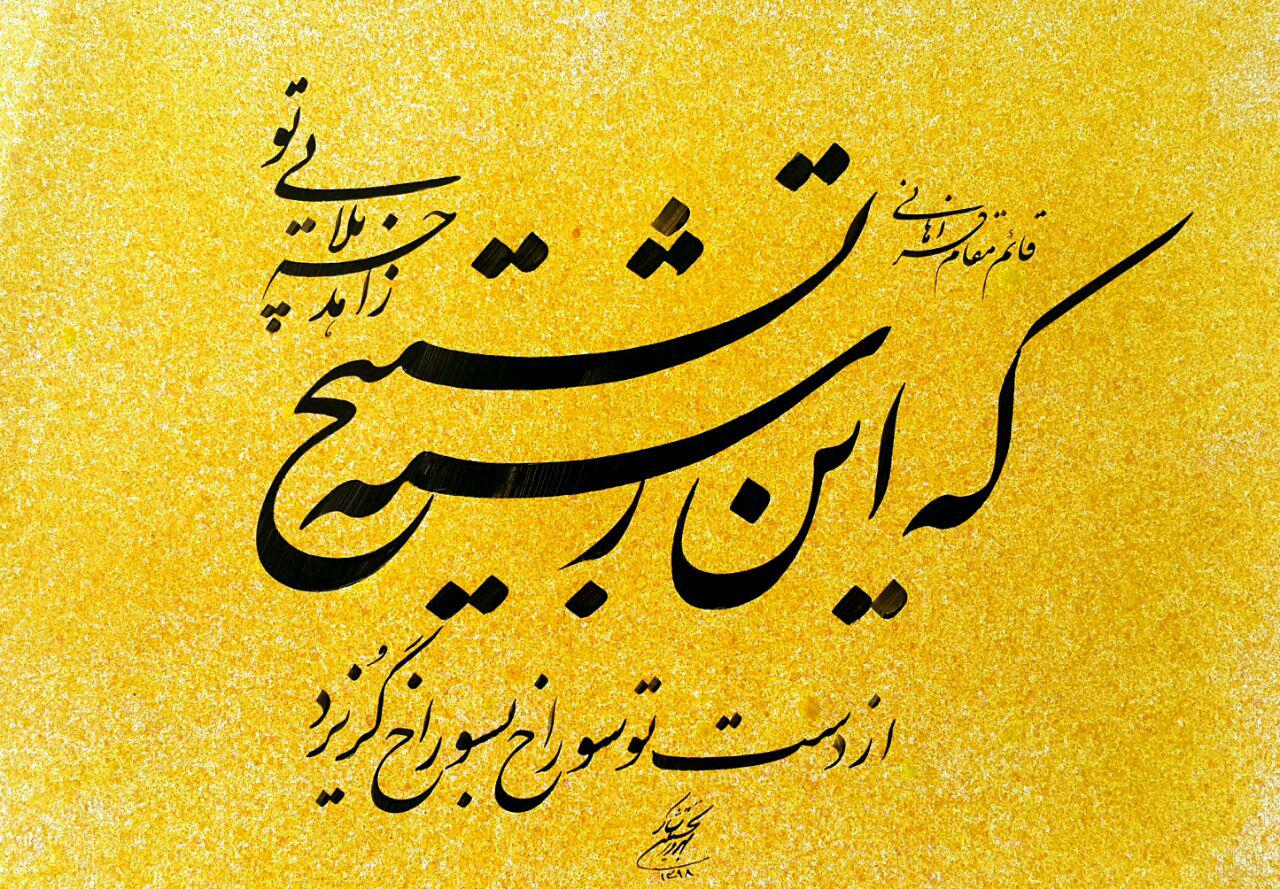 قائم مقام فراهانی
زاهد چه بلایی تو
که این رشته تسبیح
از دست تو سوراخ بسوراخ گریزد
۱۳۹۸